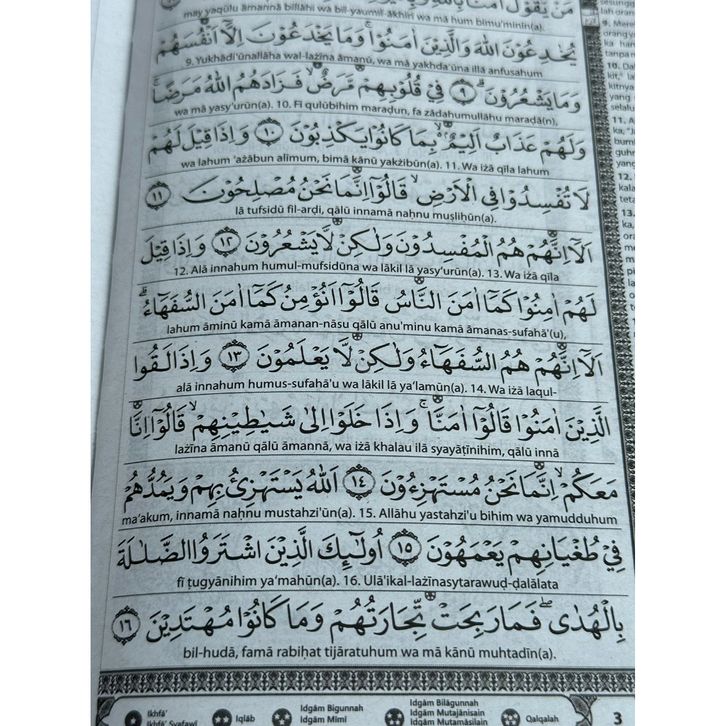 مَنْ يَّقُوْلُ اٰمَنَّا بِاللّٰهِ
may yaqūlu āmannā billāhi wa bil-yaumil-ākhiri wa mā hum bimu'minīn(a).
يُخٰدِعُوْنَ اللّٰهَ وَالَّذِيْنَ اٰمَنُوْا ۚ وَمَا يَخْدَعُوْنَ اِلَّآ اَنْفُسَهُمْ
9. Yukhādi‘ūnallāha wal-lażīna āmanū, wa mā yakhda‘ūna illā anfusahum
وَمَا يَشْعُرُوْنَ ۗ ٩ فِيْ قُلُوْبِهِمْ مَّرَضٌۙ فَزَادَهُمُ اللّٰهُ مَرَضًاۚ
wa mā yasy‘urūn(a). 10. Fī qulūbihim maraḍun, fa zādahumullāhu maraḍā(n),
وَلَهُمْ عَذَابٌ اَلِيْمٌ ۢ ەۙ بِمَا كَانُوْا يَكْذِبُوْنَ ١٠ وَاِذَا قِيْلَ لَهُمْ
wa lahum ‘ażābun alīmum, bimā kānū yakżibūn(a). 11. Wa iżā qīla lahum
لَا تُفْسِدُوْا فِى الْاَرْضِۙ قَالُوْٓا اِنَّمَا نَحْنُ مُصْلِحُوْنَ ١١
lā tufsidū fil-arḍi, qālū innamā naḥnu muṣliḥūn(a).
اَلَآ اِنَّهُمْ هُمُ الْمُفْسِدُوْنَ وَلٰكِنْ لَّا يَشْعُرُوْنَ ١٢ وَاِذَا قِيْلَ
12. Alā innahum humul-mufsidūna wa lākil lā yasy‘urūn(a). 13. Wa iżā qīla
لَهُمْ اٰمِنُوْا كَمَآ اٰمَنَ النَّاسُ قَالُوْٓا اَنُؤْمِنُ كَمَآ اٰمَنَ السُّفَهَاۤءُ ۗ
lahum āminū kamā āmanan-nāsu qālū anu'minu kamā āmanas-sufahā'(u),
اَلَآ اِنَّهُمْ هُمُ السُّفَهَاۤءُ وَلٰكِنْ لَّا يَعْلَمُوْنَ ١٣ وَاِذَا لَقُوا
alā innahum humus-sufahā'u wa lākil lā ya‘lamūn(a). 14. Wa iżā laqul-
الَّذِيْنَ اٰمَنُوْا قَالُوْٓا اٰمَنَّا ۚ وَاِذَا خَلَوْا اِلٰى شَيٰطِيْنِهِمْ ۙ قَالُوْٓا اِنَّا
lażīna āmanū qālū āmannā, wa iżā khalau ilā syayāṭīnihim, qālū innā
مَعَكُمْ ۙ اِنَّمَا نَحْنُ مُسْتَهْزِءُوْنَ ١٤ اَللّٰهُ يَسْتَهْزِئُ بِهِمْ وَيَمُدُّهُمْ
ma‘akum, innamā naḥnu mustahzi'ūn(a). 15. Allāhu yastahzi'u bihim wa yamudduhum
فِيْ طُغْيَانِهِمْ يَعْمَهُوْنَ ١٥ اُولٰۤىِٕكَ الَّذِيْنَ اشْتَرَوُا الضَّلٰلَةَ
fī ṭugyānihim ya‘mahūn(a). 16. Ulā'ikal-lażīnasytarawuḍ-ḍalālata
بِالْهُدٰىۖ فَمَا رَبِحَتْ تِّجَارَتُهُمْ وَمَا كَانُوْا مُهْتَدِيْنَ ١٦
bil-hudā, famā rabiḥat tijāratuhum wa mā kānū muhtadīn(a).
Ikhfā' Ikhfā' Syafawī Iqlāb Idgām Bigunnah Idgām Mimī Idgām Bilāgunnah Idgām Mutajānisain Idgām Mutamāṡilain Qalqalah 3